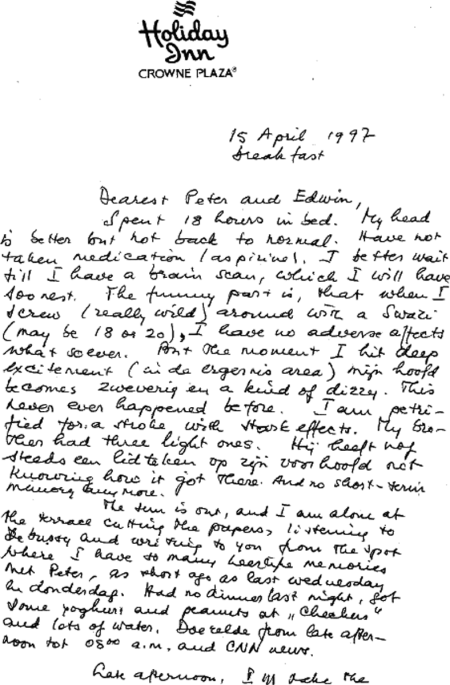 Holiday
Inn
CROWNE PLAZA®
15 April 1997
breakfast
Dearest Peter and Edwin,
Spent 18 hours in bed. My head
is better but not back to normal. Have not
taken medication (aspirine). I better wait
till I have a brain scan, which I will have
soonest. The funny part is, that when I
screw (really wild) around with a Swazi
(may be 18 or 20), I have no adverse affects
what soever. But the moment I hit deep
excitement (in de ergernis area) mijn hoofd
becomes zweverig en a kind of dizzy. This
never ever happened before. I am petri-
fied for a stroke with effects. My bro-
ther had three light ones. Hij heeft nog
steeds een lidteken op zijn voorhoofd not
knowing how it got there. And no short-term
memory any more.
The sun is out, and I am alone at
the terrace cutting the papers, listening to
Debussy and writing to you from the spot
where I have so many heerlijke memories
met Peter, as short ago as last wednesday
en donderdag. Had no dinner last night, got
some yoghurt and peanuts at "Checkers"
and lots of water. from late after-
noon tot 0500 a.m. and CNN news.
Late afternoon, I'll take the